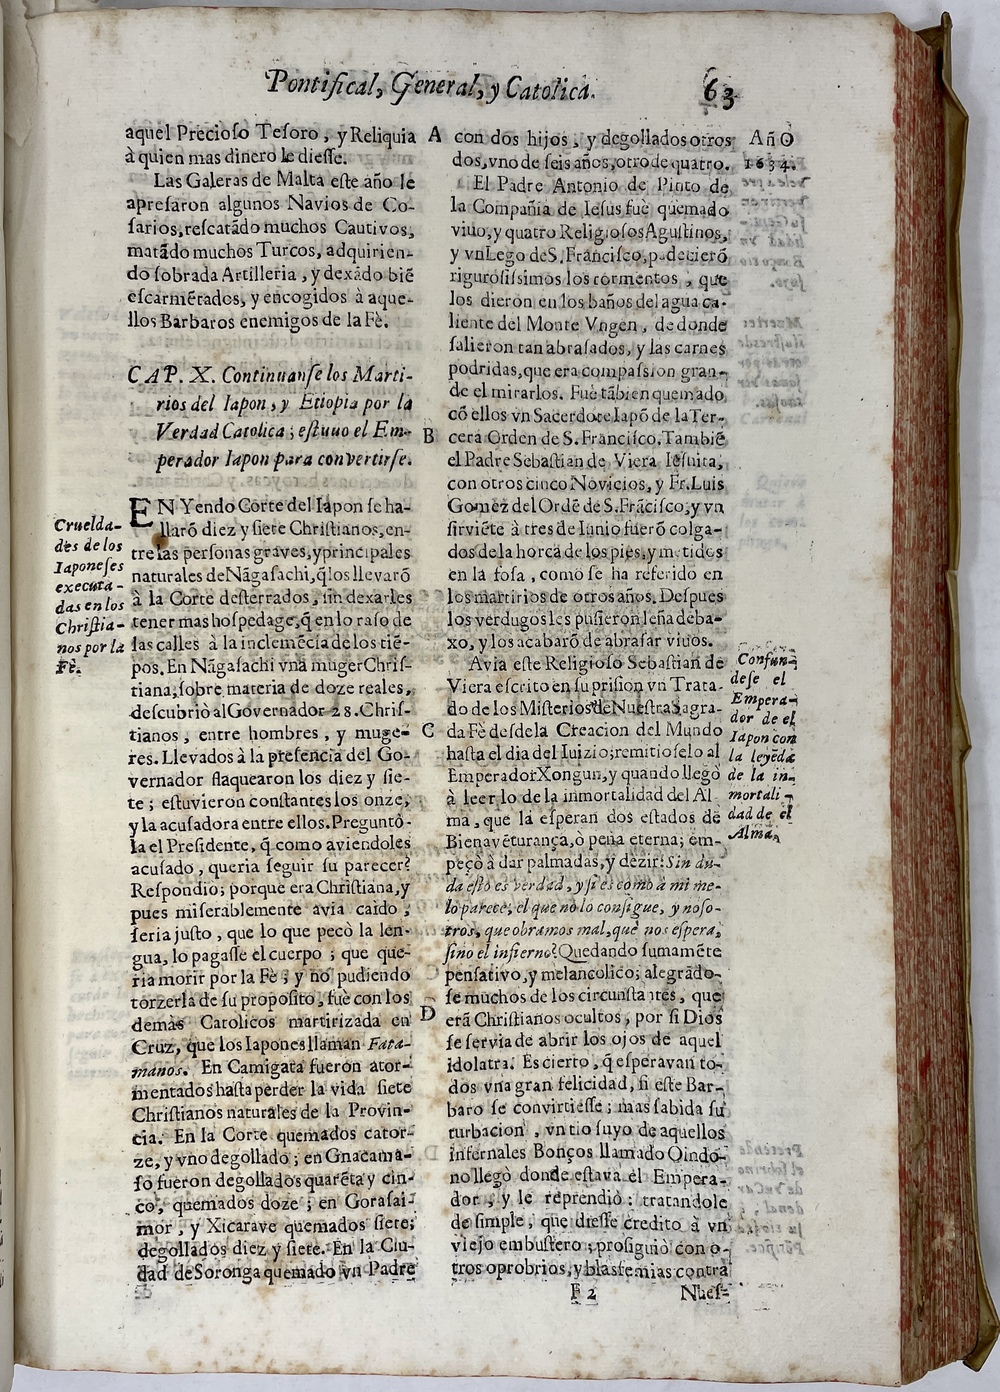 Pontifical, General, y Catolica. 63
aquel Precioſo Teſoro, y Reliquia
à quien mas dinero le dieſſe.
Las Galeras de Malta eſte año le
apreſaron algunos Navios de Co-
ſarios, reſcatãdo muchos Cautivos,
matãdo muchos Turcos, adquirien-
do ſobrada Artilleria, y dexãdo biẽ
eſcarmẽtados, y encogidos à aque-
llos Barbaros enemigos de la Fè.
CAP. X. Continuanſe los Marti-
rios del Iapon, y Etiopia por la
Verdad Catolica; eſtuuo el Em-
perador Iapon para convertirſe.
EN Yendo Corte del Iapon ſe ha-
llarõ diez y ſiete Chriſtianos, en-
tre las perſonas graves, y principales
naturales de Nãgaſachi, q̃ los llevarõ
à la Corte deſterrados, ſin dexarles
tener mas hoſpedage, q̃ en lo raſo de
las calles à la inclemẽcia de los tiẽ-
pos. En Nãgaſachi vna muger Chriſ-
tiana, ſobre materia de doze reales,
deſcubriò al Governador 28. Chriſ-
tianos, entre hombres, y muge-
res. Llevados à la preſencia del Go-
vernador flaquearon los diez y ſie-
te; eſtuvieron conſtantes los onze,
y la acuſadora entre ellos. Preguntò-
la el Preſidente, q̃ como aviendoles
acuſado, queria ſeguir ſu parecer?
Reſpondio; porque era Chriſtiana, y
pues miſerablemente avia caido,
ſeria juſto, que lo que pecò la len-
gua, lo pagaſſe el cuerpo; que que-
ria morir por la Fè; y no pudiendo
torzerla de ſu propoſito, fuè con los
demàs Catolicos martirizada en
Cruz, que los Iapones llaman Fata-
manos. En Camigata fueron ator-
mentados haſta perder la vida ſiete
Chriſtianos naturales de la Provin-
cia. En la Corte quemados cator-
ze, y vno degollado; en Gnacama-
ſo fueron degollados quarẽta y cin-
co, quemados doze; en Goraſai-
mor, y Xicarave quemados ſiete;
degollados diez y ſiete. En la Ciu-
dad de Soronga quemado vn Padre
Cruelda-
des de los
Iaponeſes
executa-
das en los
Chriſtia-
nos por la
Fè.
A
B
C
D
con dos hijos, y degollados otros
dos, vno de ſeis años, otro de quatro.
El Padre Antonio de Pinto de
la Compañia de Ieſus fuè quemado
viuo, y quatro Religioſos Aguſtinos,
y vn Lego de S. Franciſco, padecierõ
riguroſiſsimos los tormentos, que
los dieron en los baños del agua ca-
liente del Monte Vngen, de donde
ſalieron tan abraſados, y las carnes
podridas, que era compaſsion gran-
de el mirarlos. Fuè tãbien quemado
cõ ellos vn Sacerdote Iapõ de la Ter-
cera Orden de S. Franciſco. Tambiẽ
el Padre Sebaſtian de Viera Ieſuita,
con otros cinco Novicios, y Fr. Luis
Gomez del Ordẽ de S. Frãciſco, y vn
ſirviẽte à tres de Iunio fuerõ colga-
dos de la horca de los pies, y metidos
en la foſa, como ſe ha referido en
los martirios de otros años. Deſpues
los verdugos les puſieron leña deba-
xo, y los acabarõ de abraſar viuos.
Avia eſte Religioſo Sebaſtian de
Viera eſcrito en ſu priſion vn Trata-
do de los Miſterios de Nueſtra Sagra-
da Fè deſde la Creacion del Mundo
haſta el dia del Iuizio; remitioſelo al
Emperador Xongun, y quando llegò
à leer lo de la inmortalidad del Al
ma, que la eſperan dos eſtados de
Bienavẽturança, ò pena eterna; em-
peçò à dar palmadas, y dezir: Sin du-
da eſto es verdad, y ſi es como à mi me-
lo parece, el que no lo conſigue, y noſo-
tros, que obramos mal, què nos eſpera,
ſino el infierno? Quedando ſumamẽte
penſativo, y melancolico; alegrãdo-
ſe muchos de los circunſtantes, que
erã Chriſtianos ocultos, por ſi Dios
ſe ſervia de abrir los ojos de aquel
idolatra. Es cierto, q̃ eſperavan to-
dos vna gran felicidad, ſi eſte Bar-
baro ſe convirtieſſe; mas ſabida ſu
turbacion, vn tio ſuyo de aquellos
infernales Bonços llamado Oindo-
no llegò donde eſtava el Empera-
dor, y le reprendiò: tratandole
de ſimple, que dieſſe credito à vn
viejo embuſtero; proſiguiò con o-
tros oprobrios, y blasfemias contra
Año
1634.
Confun-
deſe el
Empera-
dor de el
Iapon con
la leyẽda
de la in-
mortali-
dad de el
Alma.
F 2 Nueſ-